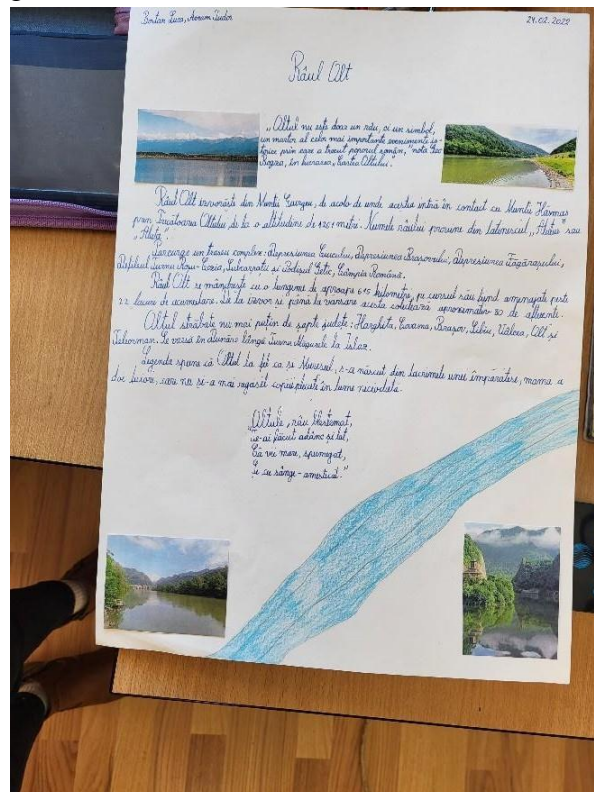 Bortan Luca, Avram Tudor 24.02.2022
Râul Olt
„Oltul nu este doar un râu, ci un simbol,
un martor al celor mai importante evenimente is-
torice prin care a trecut poporul român", nota Geo
Bogza, în lucrarea „Cartea Oltului".
Râul Olt izvorăște din Munții Giurgeu, de acolo de unde aceștia intră în contact cu Munții Hășmaș
prin Tăietoarea Oltului, de la o altitudine de 1280 metri. Numele râului provine din latinescul „Alutus" sau
„Aluta".
Parcurge un traseu complex: Depresiunea Ciucului, Depresiunea Brașovului, Depresiunea Făgărașului,
Defileul Turnu Roșu-Cozia, Subcarpații și Podișul Getic, Câmpia Română.
Râul Olt se mândrește cu o lungime de aproape 615 kilometri, pe cursul său fiind amenajate peste
22 lacuri de acumulare. De la izvor și până la vărsare acesta colectează aproximativ 80 de afluenți.
Oltul străbate nu mai puțin de șapte județe: Harghita, Covasna, Brașov, Sibiu, Vâlcea, Olt și
Teleorman. Se varsă în Dunăre lângă Turnu Măgurele la Islaz.
Legenda spune că Oltul la fel ca și Mureșul, s-a născut din lacrimile unei împărătese, mama a
doi feciori, care nu și-a mai regăsit copiii plecați în lume niciodată.
„Oltule, râu blestemat,
Ce-ai făcut adânc și lat,
Că vii mare, spumegat,
Și cu sânge-amestecat."